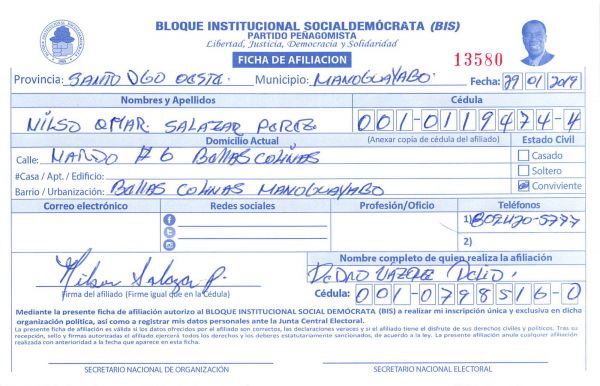 BLOQUE INSTITUCIONAL SOCIALDEMÓCRATA (BIS)
PARTIDO PEÑAGOMISTA
Libertad, Justicia, Democracia y Solidaridad
FICHA DE AFILIACION
13580
Provincia: SANTO DGO OESTE. Municipio: MANOGUAYABO. Fecha: 29 01 2019
Nombres y Apellidos Cédula
NILSO OMAR. SALAZAR PEREZ 001-0119474-4
Domicilio Actual (Anexar copia de cédula del afiliado) Estado Civil
Calle: NARDO # 6 BELLAS COLINAS Casado
#Casa / Apt. / Edificio: Soltero
Barrio / Urbanización: BELLAS COLINAS MANOGUAYABO Conviviente
Correo electrónico Redes sociales Profesión/Oficio Teléfonos
1) 809
2)
Nombre completo de quien realiza la afiliación
Nilson Salazar P. PEDRO VAZQUEZ
Firma del afiliado (Firme igual que en la Cédula) Cédula: 001-0798516-0
Mediante la presente ficha de afiliación autorizo al BLOQUE INSTITUCIONAL SOCIAL DEMÓCRATA (BIS) a realizar mi inscripción única y exclusiva en dicha
organización política, así como a registrar mis datos personales ante la Junta Central Electoral.
La presente ficha de afiliación es válida si los datos ofrecidos por el afiliado son correctos, las declaraciones veraces y si el afiliado tiene el disfrute de sus derechos civiles y políticos. Tras su
recepción, sello y firmas autorizadas el afiliado ejercerá todos los derechos y los deberes estatutariamente sancionados, de acuerdo a la ley. La presente afiliación anula cualquier afiliación
realizada con anterioridad a la fecha que aparece en esta ficha.
SECRETARIO NACIONAL DE ORGANIZACIÓN SECRETARIO NACIONAL ELECTORAL